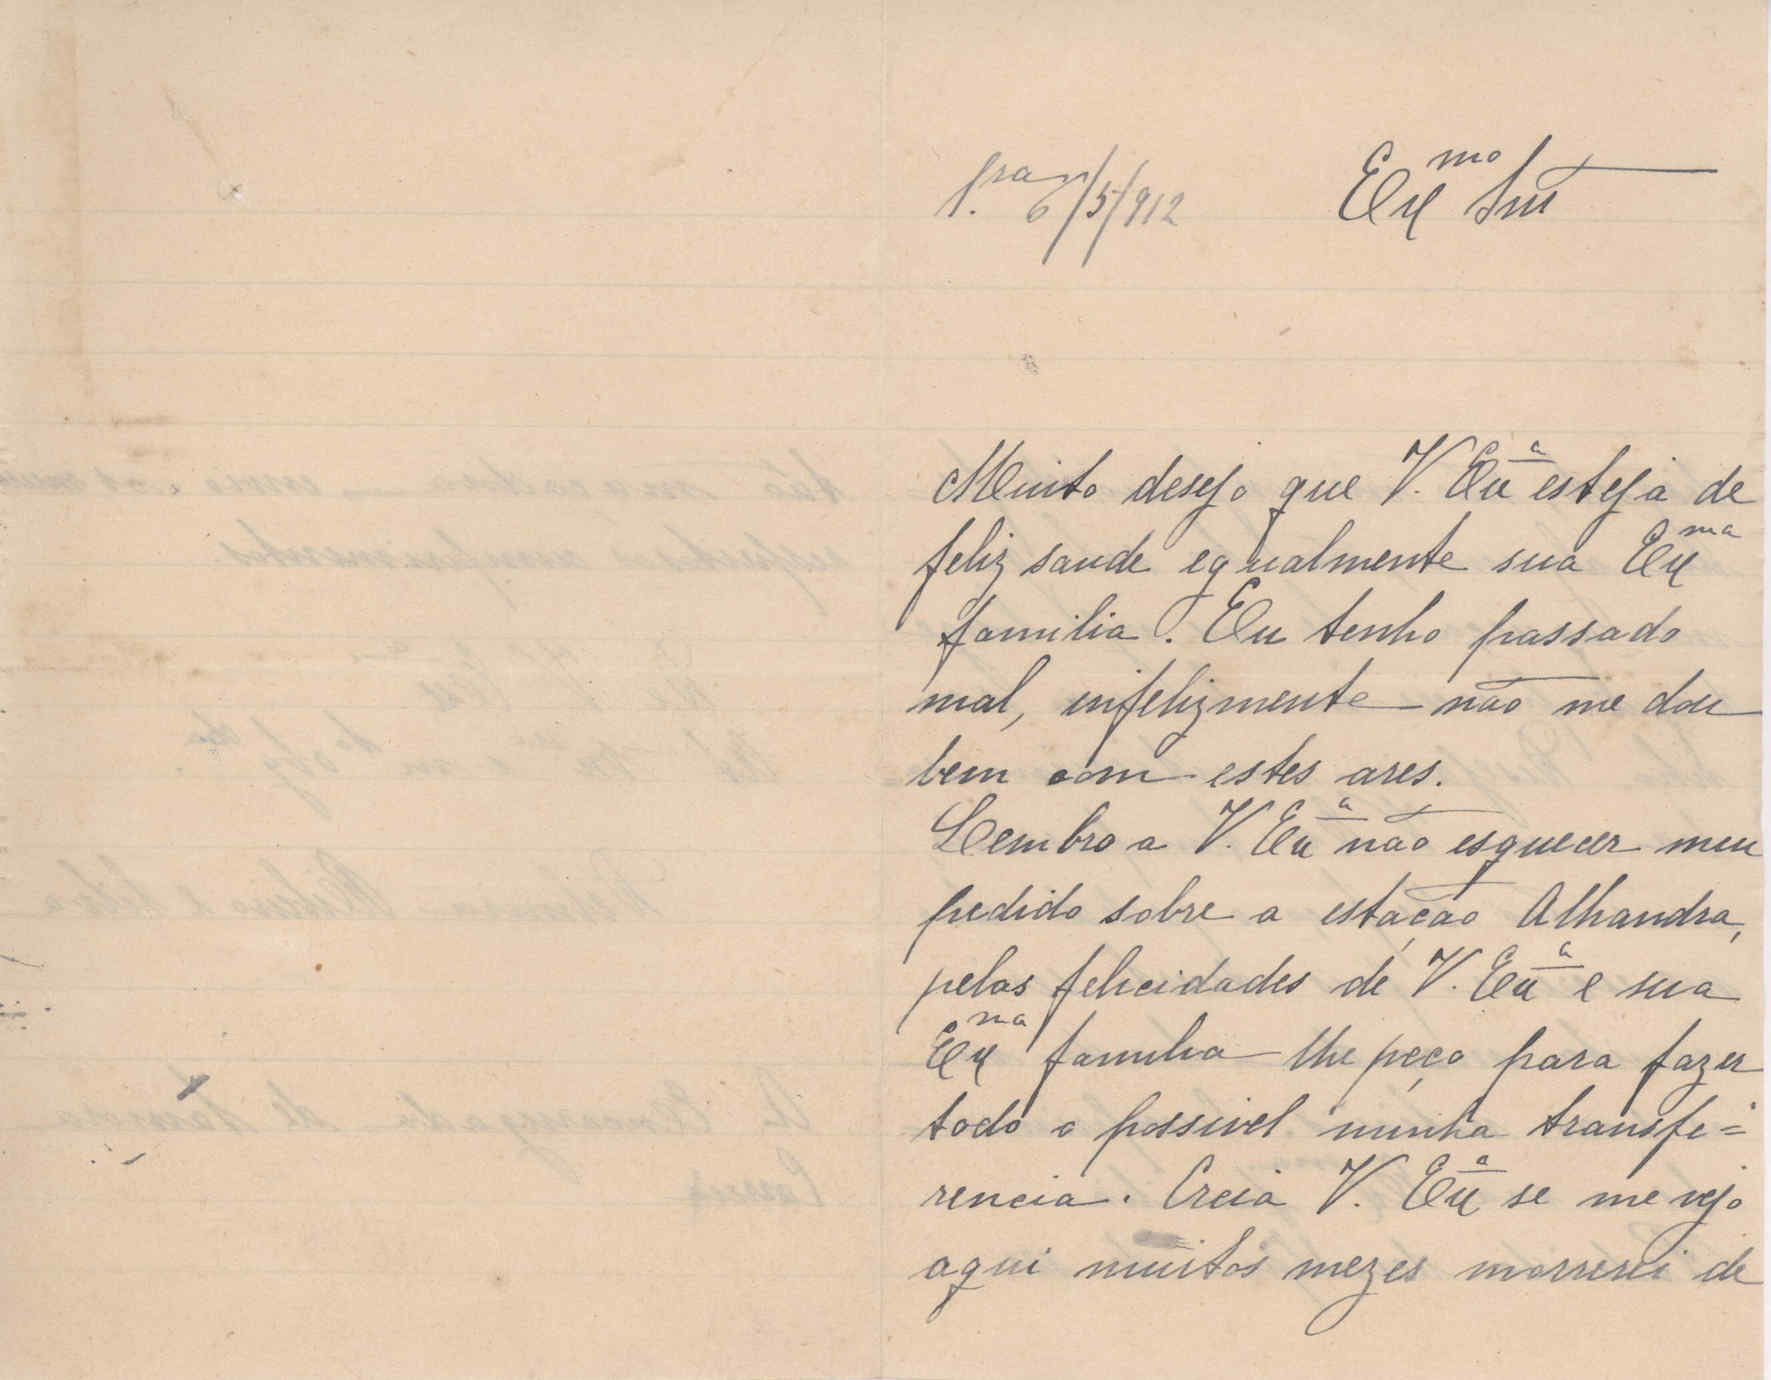 f.ra 6/5/912
Exmo Snr
Muito desejo que V. Exa esteja de
feliz saude egualmente sua Exma
familia. Eu tenho passado
mal, infelizmente não me dou
bem com estes ares.
Lembro a V. Exa não esquecer meu
pedido sobre a estação Alhandra,
pelas felicidades de V. Exa e sua
Exma familia lhe peço para fazer
todo o possivel minha transfe=
rencia. Creia V. Exa se me vejo
aqui muitos mezes morrerei de